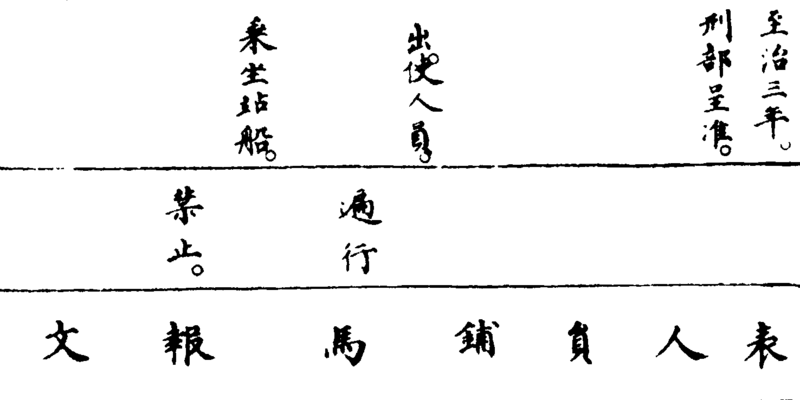 至治三年。
刑部呈准。
出使人員。
乘坐站船。
遍行
禁止。
表人員鋪馬報文